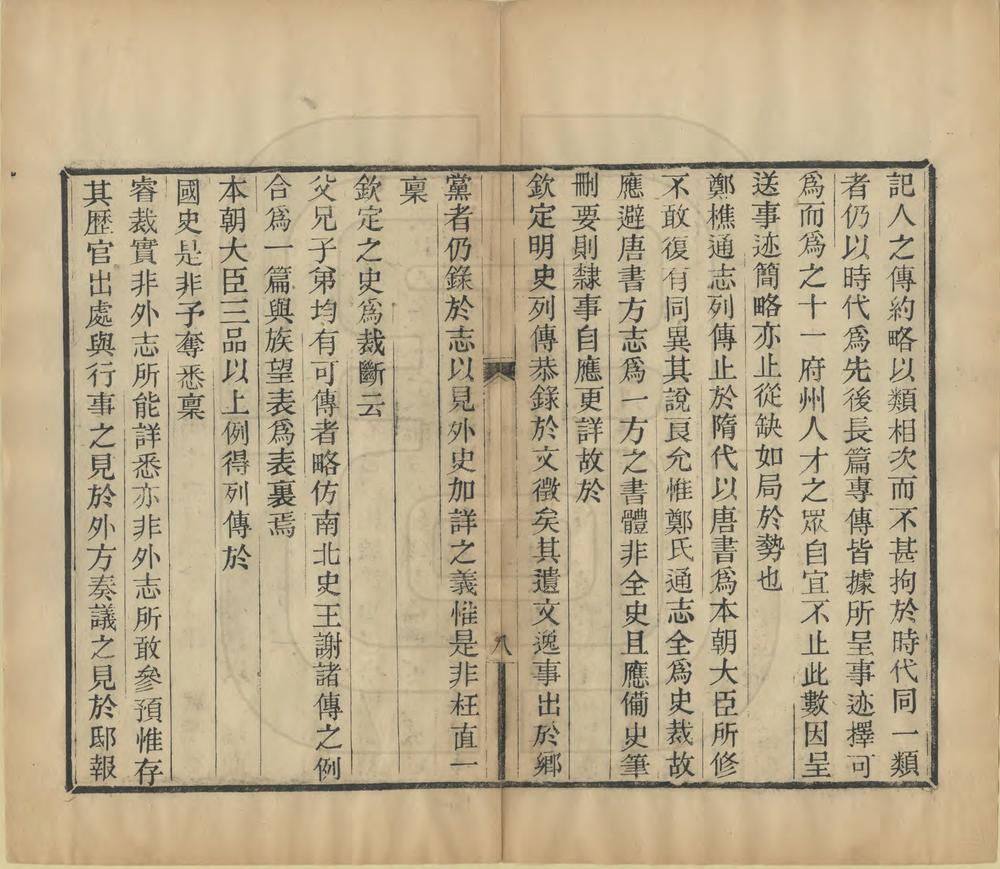 記人之傳約略以類相次而不甚拘於時代同一類
者仍以時代爲先後長篇專傳皆據所呈事迹擇可
爲而爲之十一府州人才之眾自宜不止此數因呈
送事迹簡略亦止從缺如局於勢也
鄭樵通志列傳止於隋代以唐書爲本朝大臣所修
不敢復有同異其說良允惟鄭氏通志全爲史裁故
應避唐書方志爲一方之書體非全史且應備史筆
刪要則隸事自應更詳故於
欽定明史列傳恭錄於文徵矣其遺文逸事出於鄉
八
黨者仍錄於志以見外史加詳之義惟是非枉直一
稟
欽定之史爲裁斷云
父兄子弟均有可傳者略仿南北史王謝諸傳之例
合爲一篇與族望表爲表裏焉
本朝大臣三品以上例得列傳於
國史是非予奪悉稟
睿裁實非外志所能詳悉亦非外志所敢參預惟存
其歷官出處與行事之見於外方奏議之見於邸報